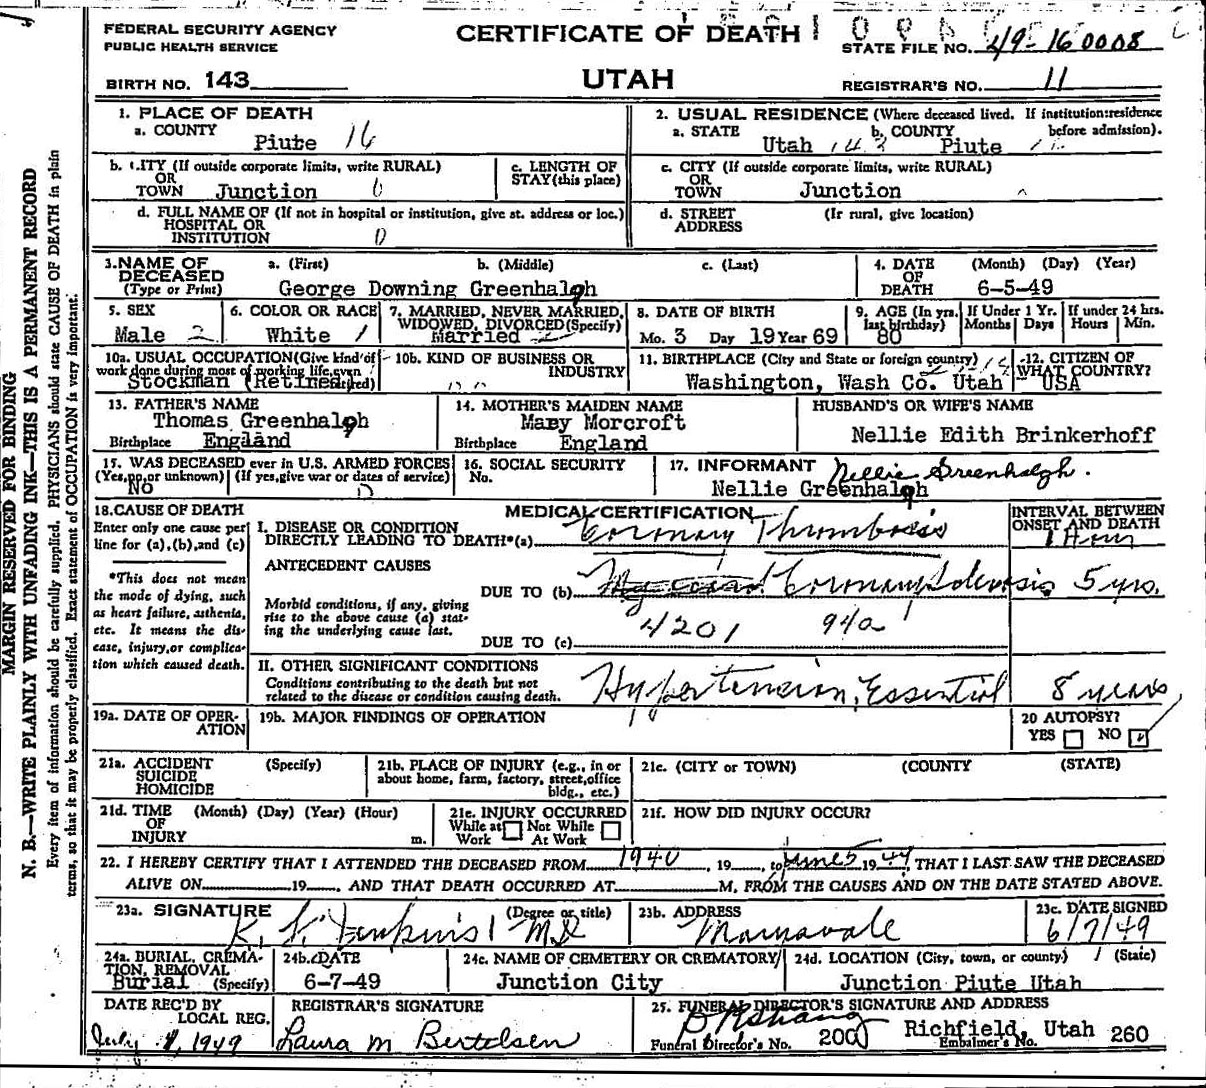 FEDERAL SECURITY AGENCY
PUBLIC HEALTH SERVICE
CERTIFICATE OF DEATH
STATE FILE NO. 49-160008
BIRTH NO. 143
UTAH
REGISTRAR'S NO. 11
1. PLACE OF DEATH
a. COUNTY
Piute 16
2. USUAL RESIDENCE (Where deceased lived. If institution:residence before admission).
a. STATE Utah 143 b. COUNTY Piute
b. CITY (If outside corporate limits, write RURAL)
OR
TOWN Junction
c. LENGTH OF
STAY (this place)
c. CITY (If outside corporate limits, write RURAL)
OR
TOWN Junction
d. FULL NAME OF (If not in hospital or institution, give st. address or loc.)
HOSPITAL OR
INSTITUTION 0
d. STREET (If rural, give location)
ADDRESS
3. NAME OF
DECEASED
(Type or Print)
a. (First) b. (Middle) c. (Last)
George Downing Greenhalgh
4. DATE (Month) (Day) (Year)
OF
DEATH 6-5-49
5. SEX
Male 2
6. COLOR OR RACE
White 1
7. MARRIED, NEVER MARRIED,
WIDOWED, DIVORCED (Specify)
Married 2
8. DATE OF BIRTH
Mo. 3 Day 19 Year 69
9. AGE (In yrs.
last birthday)
80
If Under 1 Yr.
Months Days
If under 24 hrs.
Hours Min.
10a. USUAL OCCUPATION (Give kind of
work done during most of working life, even
Stockman (Retired
10b. KIND OF BUSINESS OR
INDUSTRY
11. BIRTHPLACE (City and State or foreign country)
Washington, Wash Co. Utah
12. CITIZEN OF
WHAT COUNTRY?
USA
13. FATHER'S NAME
Thomas Greenhalgh
Birthplace England
14. MOTHER'S MAIDEN NAME
Mary Morcroft
Birthplace England
HUSBAND'S OR WIFE'S NAME
Nellie Edith Brinkerhoff
15. WAS DECEASED ever in U.S. ARMED FORCES
(Yes, no, or unknown) (If yes, give war or dates of service)
No 0
16. SOCIAL SECURITY
No.
17. INFORMANT Nellie Greenhalgh.
Nellie Greenhalgh
18. CAUSE OF DEATH
Enter only one cause per
line for (a), (b), and (c)
*This does not mean
the mode of dying, such
as heart failure, asthenia,
etc. It means the dis-
ease, injury, or complica-
tion which caused death.
MEDICAL CERTIFICATION
INTERVAL BETWEEN
ONSET AND DEATH
I. DISEASE OR CONDITION
DIRECTLY LEADING TO DEATH*(a) Coronary Thrombosis 1 Hour
ANTECEDENT CAUSES
DUE TO (b) Coronary Sclerosis 5 yrs.
Morbid conditions, if any, giving
rise to the above cause (a) stat-
ing the underlying cause last.
4201 94a
DUE TO (c)
II. OTHER SIGNIFICANT CONDITIONS
Conditions contributing to the death but not
related to the disease or condition causing death.
Hypertension, Essential 8 years
19a. DATE OF OPER-
ATION
19b. MAJOR FINDINGS OF OPERATION
20 AUTOPSY?
YES NO
21a. ACCIDENT (Specify)
SUICIDE
HOMICIDE
21b. PLACE OF INJURY (e.g., in or
about home, farm, factory, street, office
bldg., etc.)
21c. (CITY or TOWN) (COUNTY) (STATE)
21d. TIME (Month) (Day) (Year) (Hour)
OF
INJURY m.
21e. INJURY OCCURRED
While at Not While
Work At Work
21f. HOW DID INJURY OCCUR?
22. I HEREBY CERTIFY THAT I ATTENDED THE DECEASED FROM 1940, 19 , to June 5 1949, THAT I LAST SAW THE DECEASED
ALIVE ON 19 , AND THAT DEATH OCCURRED AT M, FROM THE CAUSES AND ON THE DATE STATED ABOVE.
23a. SIGNATURE (Degree or title)
K. F. Jenkins MD
23b. ADDRESS
Marysvale
23c. DATE SIGNED
6/7/49
24a. BURIAL, CREMA-
TION, REMOVAL
Burial (Specify)
24b. DATE
6-7-49
24c. NAME OF CEMETERY OR CREMATORY
Junction City
24d. LOCATION (City, town, or county) (State)
Junction Piute Utah
DATE REC'D BY
LOCAL REG.
July 1, 1949
REGISTRAR'S SIGNATURE
Laura M Bertelsen
25. FUNERAL DIRECTOR'S SIGNATURE AND ADDRESS
Richfield, Utah
Funeral Director's No. 200 Embalmer's No. 260
MARGIN RESERVED FOR BINDING
N. B.—WRITE PLAINLY WITH UNFADING INK—THIS IS A PERMANENT RECORD
Every item of information should be carefully supplied. PHYSICIANS should state CAUSE OF DEATH in plain
terms, so that it may be properly classified. Exact statement of OCCUPATION is very important.